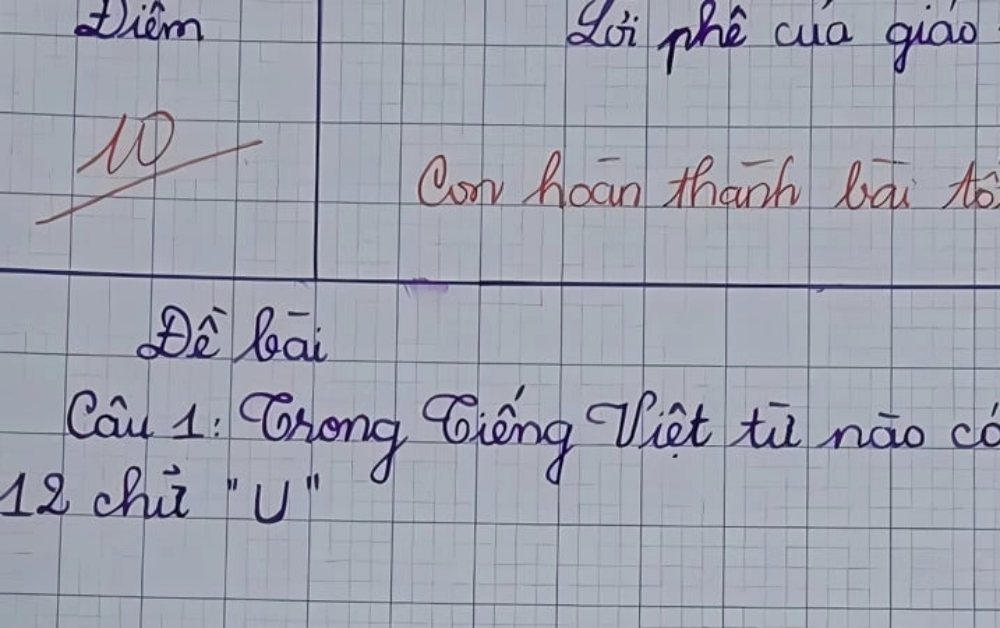 Điểm
Lời phê của giáo
10
Con hoàn thành bài tố
Đề bài
Câu 1: Trong Tiếng Việt từ nào có
12 chữ "U"